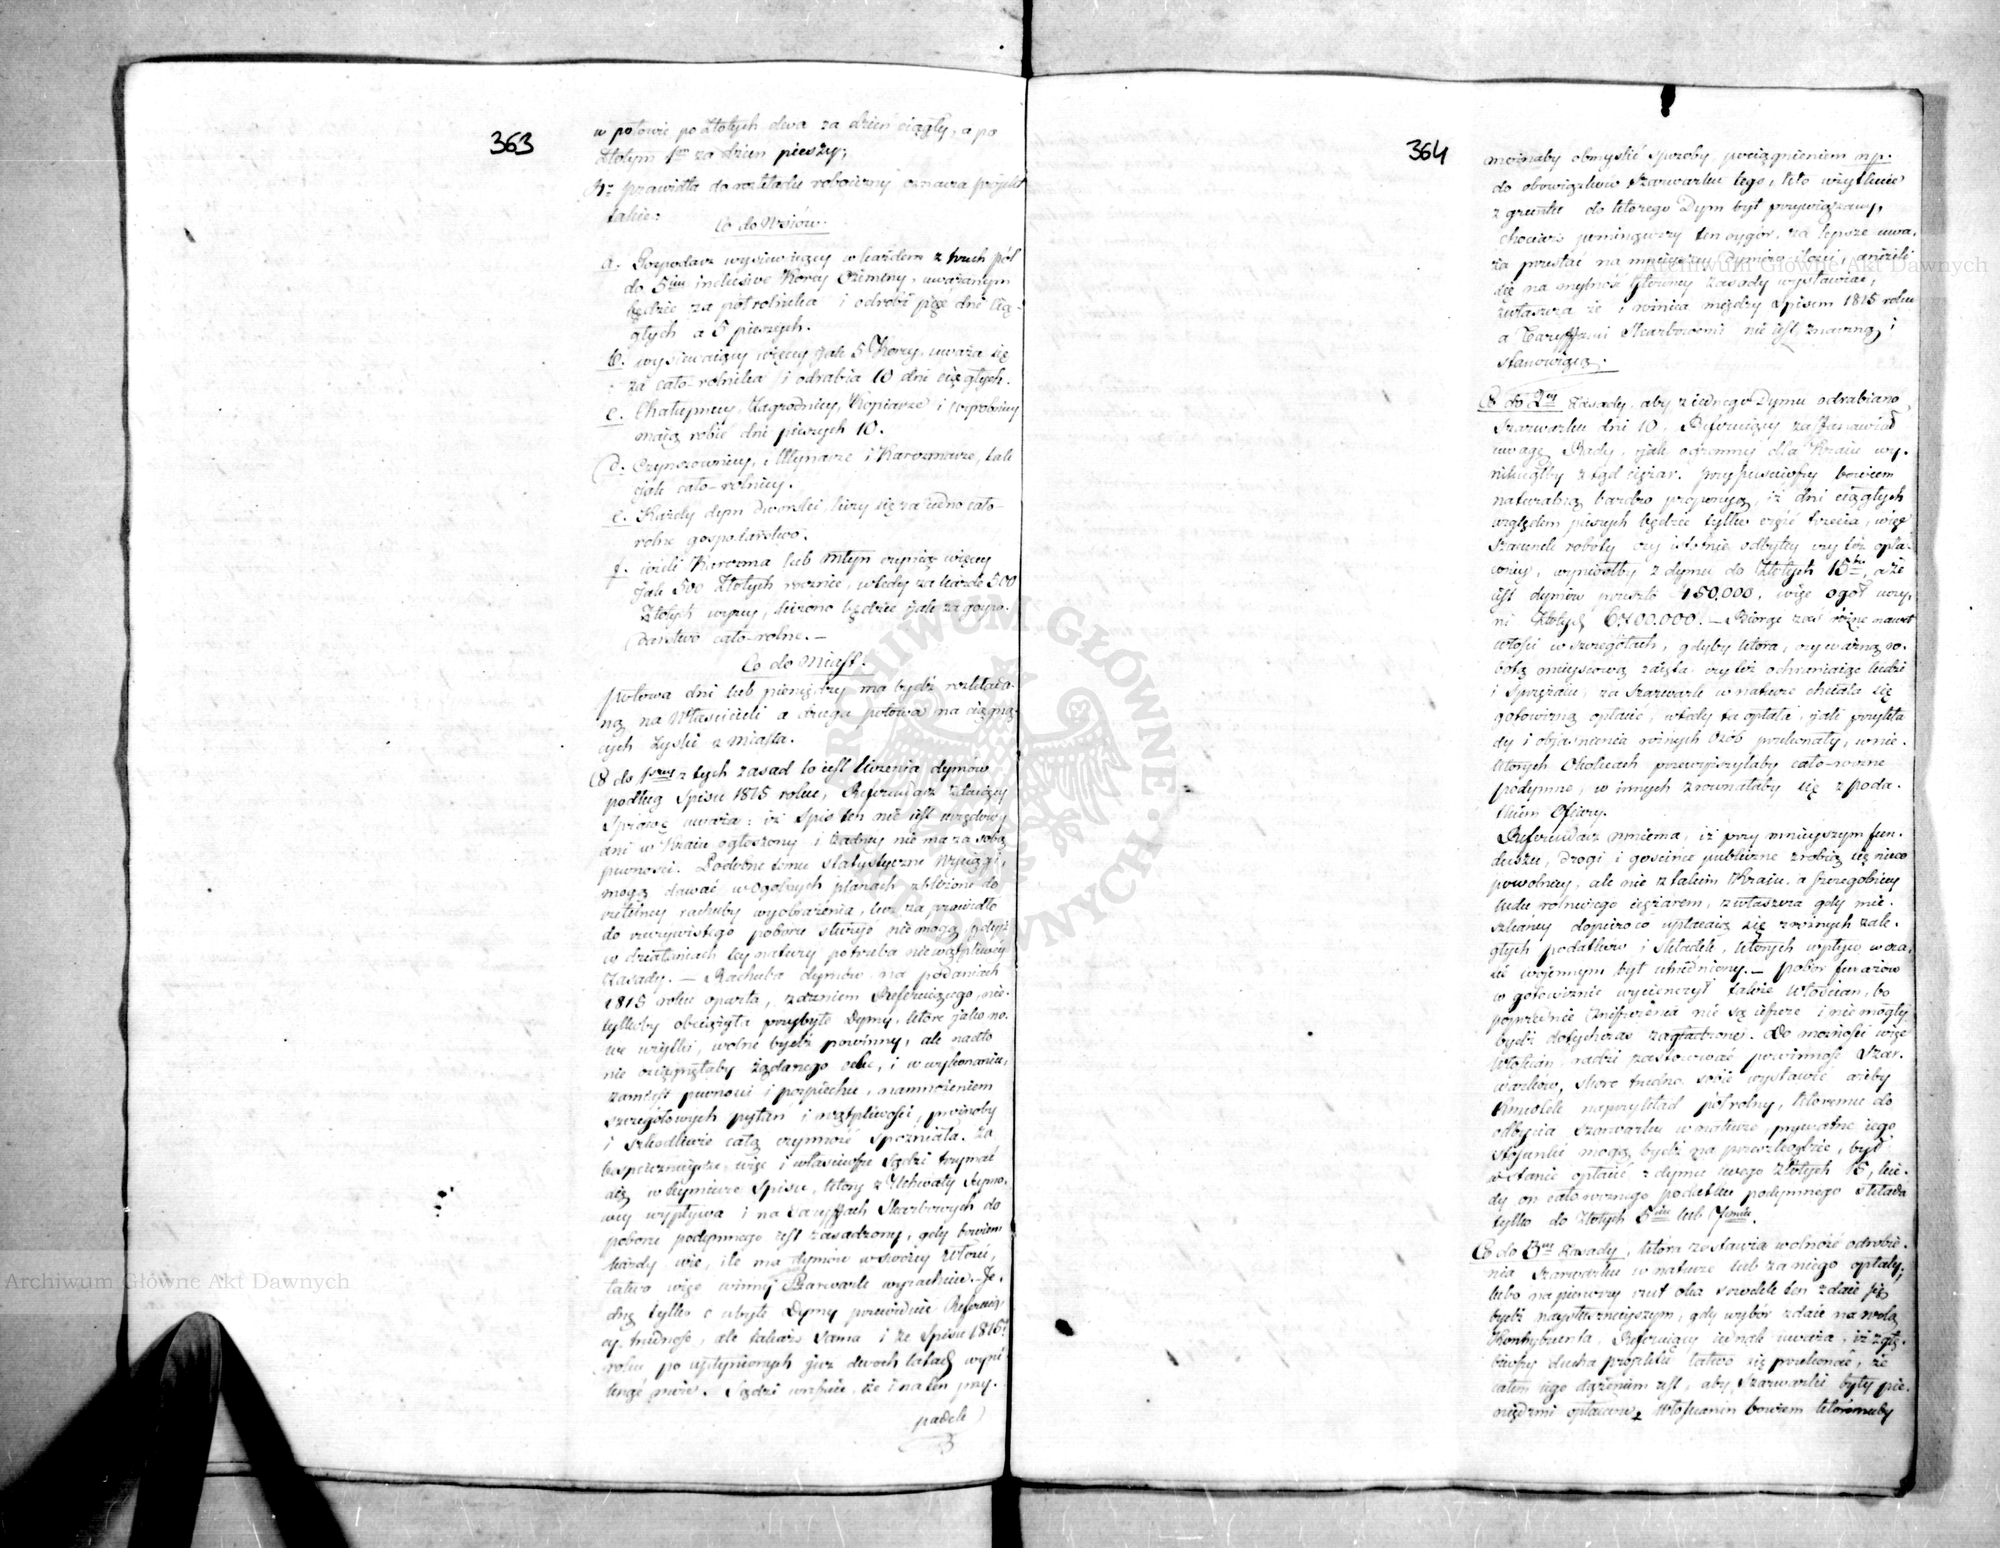 363
w połowie po Złotych dwa za dzień ciągły, a po
Złotym 1ⁿ za dzień pieszy;
prawidła do rozkładu robocizny oznacza projekt
takie:
Co do Wsiów.
a. Gospodarz wysiewaiący w każdem z trzech pól
do 5ciu inclusive Korcy Oziminy, uważanym
będzie za półrolnika i odrobi pięć dni cią-
głych a 5 pieszych.
b. wysiewaiący więcey jak 5 Korcy, uważa się
za cało-rolnika i odrabia 10 dni ciągłych.
c. Chałupnicy, Zagrodnicy, Kopiarze i wyrobnicy
maią robić dni pieszych 10.
d. Czynszownicy, Młynarze i Karczmarze, tak
jak cało-rolnicy.
e. Każdy dym dworski, liczy się za iedno cało-
rolne gospodarstwo.
f. ieżeli Karczma lub Młyn czynią więcey
jak 500 Złotych rocznie, wtedy za każde 500
Złotych wyżey, liczono będzie jak za gospo-
darstwo cało-rolne. —
Co do Miast.
połowa dni lub pieniędzy ma bydź rozkłada-
ną na Właścicieli a druga połowa na ciągną-
cych Zyski z Miasta.
Co do 1szey z tych zasad to iest liczenia dymów
podług Spisu 1815 roku, Referendarz zdaiący
Sprawę uważa: iż Spis ten nie iest urzędowy
ani w Kraiu ogłoszony i żadney nie ma za sobą
pewności. Podobne temu statystyczne wyciągi,
mogą dawać w ogólnych planach zbliżone do
rachuby wyobrażenia, lecz za prawidło
do rzeczywistego poboru służyć nie mogą, gdyż
w działaniach tey natury potrzeba niewątpliwey
Zasady. — Rachuba dymów na podaniach
1815 roku oparta, zdaniem Referuiącego, nie-
tylkoby obciążyła przybyłe Dymy, które jako no-
we wolne bydź powinny, ale nadto
nie osięgnęłaby żądanego celu, i w wykonaniu,
zamiast pewności i pospiechu, namnożeniem
szczegółowych pytań i wątpliwości, próżnoby
i szkodliwie całą czynność spóźniała. Za
bespiecznieysze więc i właściwsze sądzi trzymać
się w teymierze Spisu, który z Uchwały Seymo-
wey wypływa i na Taryffach Skarbowych do
poboru podymnego iest zasadzony, gdy bowiem
każdy wie, ile ma dymów w swoiey Włości,
łatwo więc winny Szarwark wyrachuie. Je-
dną tylko o ubyłe Dymy przewiduie Referuią-
cy trudność, ale takaż sama i ze Spisu 1815
roku po upłynionych już dwóch latach wyni-
knąć może. Sądzi wreszcie, że i na ten przy-
padek
364
możnaby obmyślić sposoby, pociągnieniem np.
do obowiązków Szarwarku tego, kto użytkuie
z gruntu do którego Dym był przywiązany,
chociaż pominąwszy ten rygór, za lepsze uwa-
ża przestać na mnieyszey Dymów ilości, aniżeli
się na mylność główney zasady wystawiać,
zwłaszcza że i różnica między Spisem 1815 roku
a Taryffami Skarbowemi nie iest znaczną i
stanowiącą.
Co do 2ey Zasady, aby z iednego Dymu odrabiano
Szarwarku dni 10, Referuiący zastanawiał
uwagę Rady, jak ogromny dla Kraiu wy-
niknąłby ztąd ciężar. Przypuściwszy bowiem
naturalną bardzo proporcyą, iż dni ciągłych
względem pieszych będzie tylko część trzecia, więc
szacunek roboty czy istotnie odbytey czy też opła-
coney, wyniosłby z dymu do Złotych 15tu, a że
iest dymów przeszło 450,000, więc ogół uczy-
ni Złotych 6,000.000. — Biorąc zaś różne nawet
włości w szczegółach, gdyby która, czy ważną ro-
botą mieyscową zaięta, czy też ochraniaiąc ludzi
i Sprzężaiu, za Szarwark w naturze chciała się
gotowizną opłacić, wtedy ta opłata, jak przykła-
dy i obiaśnienia różnych osób przekonały, w nie-
których Okolicach przewyższyłaby cało-roczne
podymne, w innych zrównałaby się z poda-
tkiem Ofiary.
Referendarz mniema, iż przy mnieyszym fun-
duszu, drogi i gościńce publiczne zrobią się nieco
powolniey, ale nie z takim Kraiu, a szczególniey
ludu rolniczego ciężarem, zwłaszcza gdy mie-
szkańcy dopiero co upłacaią się z różnych zale-
głych podatków i składek, których wpływ w cza-
sie woiennym był utrudniony. — pobór furażów
w gotowiznie wycieńczył także Włościan, bo
poprzednie zniszczenia nie są ieszcze i nie mogły
bydź dotychczas zagładzone. Do możności więc
Włościan radzi zastosować powinność Szar-
warków, skoro trudno sobie wystawić ażeby
Kmiotek naprzykład półrolny, któremu do
odbycia Szarwarku w naturze, prywatne iego
stosunki mogą bydź na przeszkodzie, był
w stanie opłacić z dymu swego Złotych 15, kie-
dy on całorocznego podatku podymnego składa
tylko do Złotych 5ciu lub 7miu.
Co do 3ey Zasady, która zostawia wolność odrobie-
nia Szarwarku w naturze lub za niego opłaty;
lubo na pierwszy rzut oka szrodek ten zdaie się
bydź naysłusznieyszym, gdy wybór zdaie na wolą
Kontrybuenta, Referuiący iednak uważa, iż zgłę-
biwszy ducha proiektu łatwo się przekonać, że
całem iego dążeniem iest, aby Szarwarki były pie-
niędzmi opłacane, Włościanin bowiem któremuby
Archiwum Główne Akt Dawnych
Archiwum Główne Akt Dawnych
ARCHIWUM GŁÓWNE AKT DAWNYCH